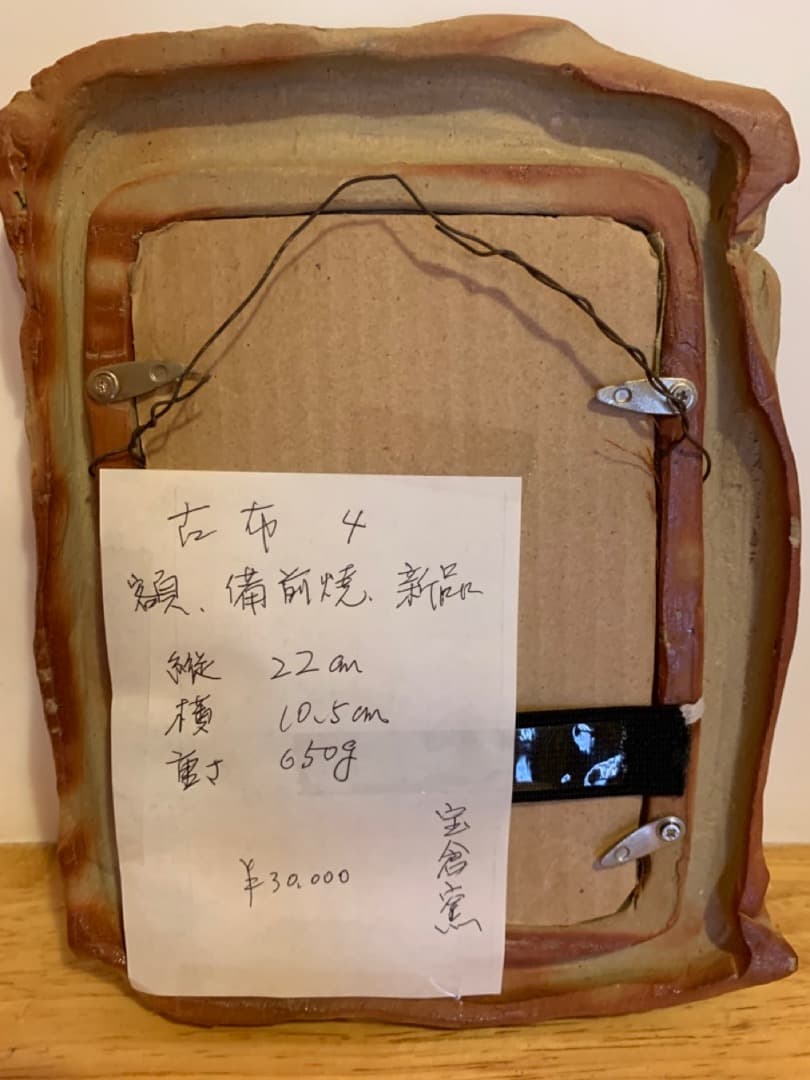 古布 4
額、備前焼、新品
縦 22cm
横 10.5cm
重さ 650g
¥30.000
宝倉窯